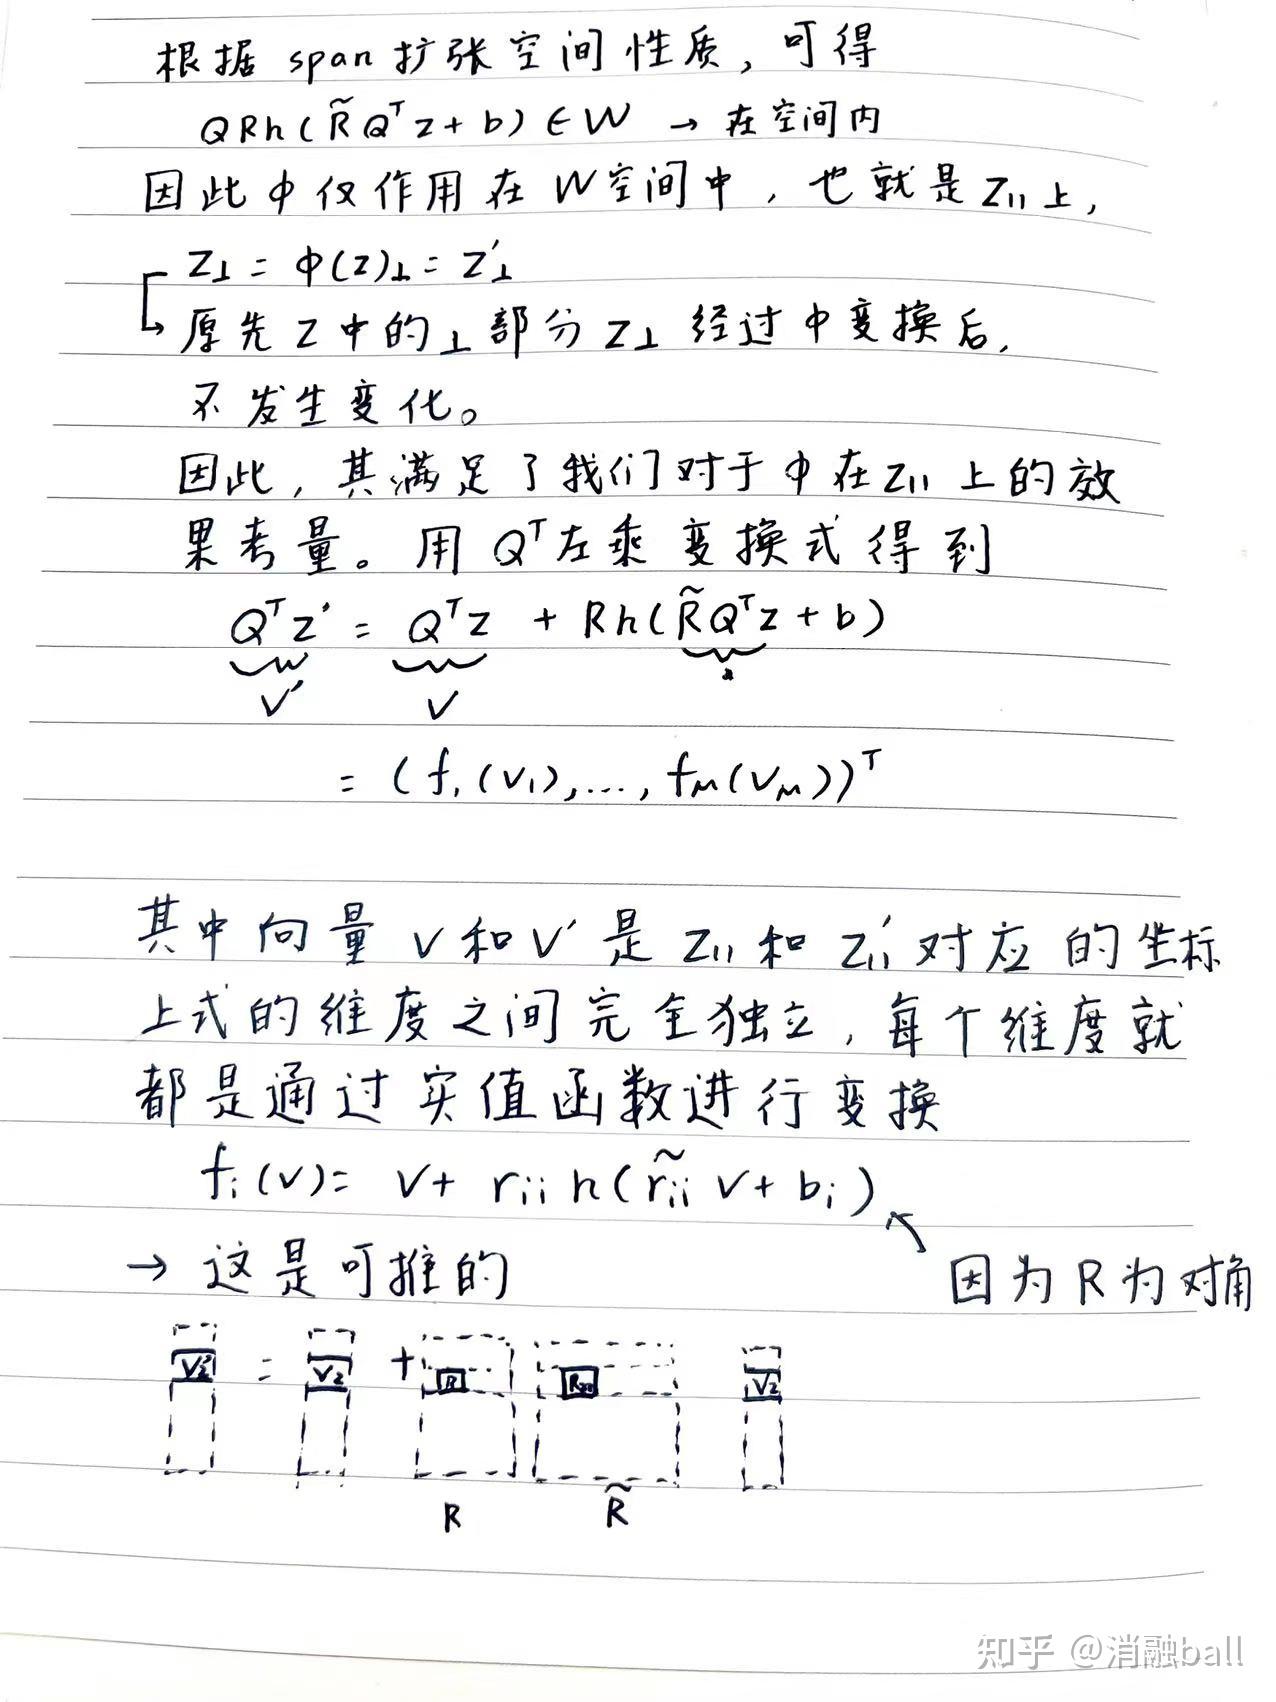 根据 span 扩张空间性质，可得
QRh(R̃Qᵀz + b) ∈ W → 在空间内
因此 φ 仅作用在 W 空间中，也就是 z∥ 上，
z⊥ = φ(z)⊥ = z'⊥
原先 z 中的⊥部分 z⊥ 经过 φ 变换后，
不发生变化。
因此，其满足了我们对于 φ 在 z∥ 上的效
果考量。用 Qᵀ 左乘变换式得到
Qᵀz' = Qᵀz + Rh(R̃Qᵀz + b)
V' V
= (f₁(V₁), ..., f_M(V_M))ᵀ
其中向量 V 和 V' 是 z∥ 和 z'∥ 对应的坐标
上式的维度之间完全独立，每个维度就
都是通过实值函数进行变换
fᵢ(v) = v + rᵢᵢ h(r̃ᵢᵢ v + bᵢ)
→ 这是可推的
因为 R 为对角
V₂' = V₂ + R R₂₂ V₂
R R̃
知乎 @消融ball